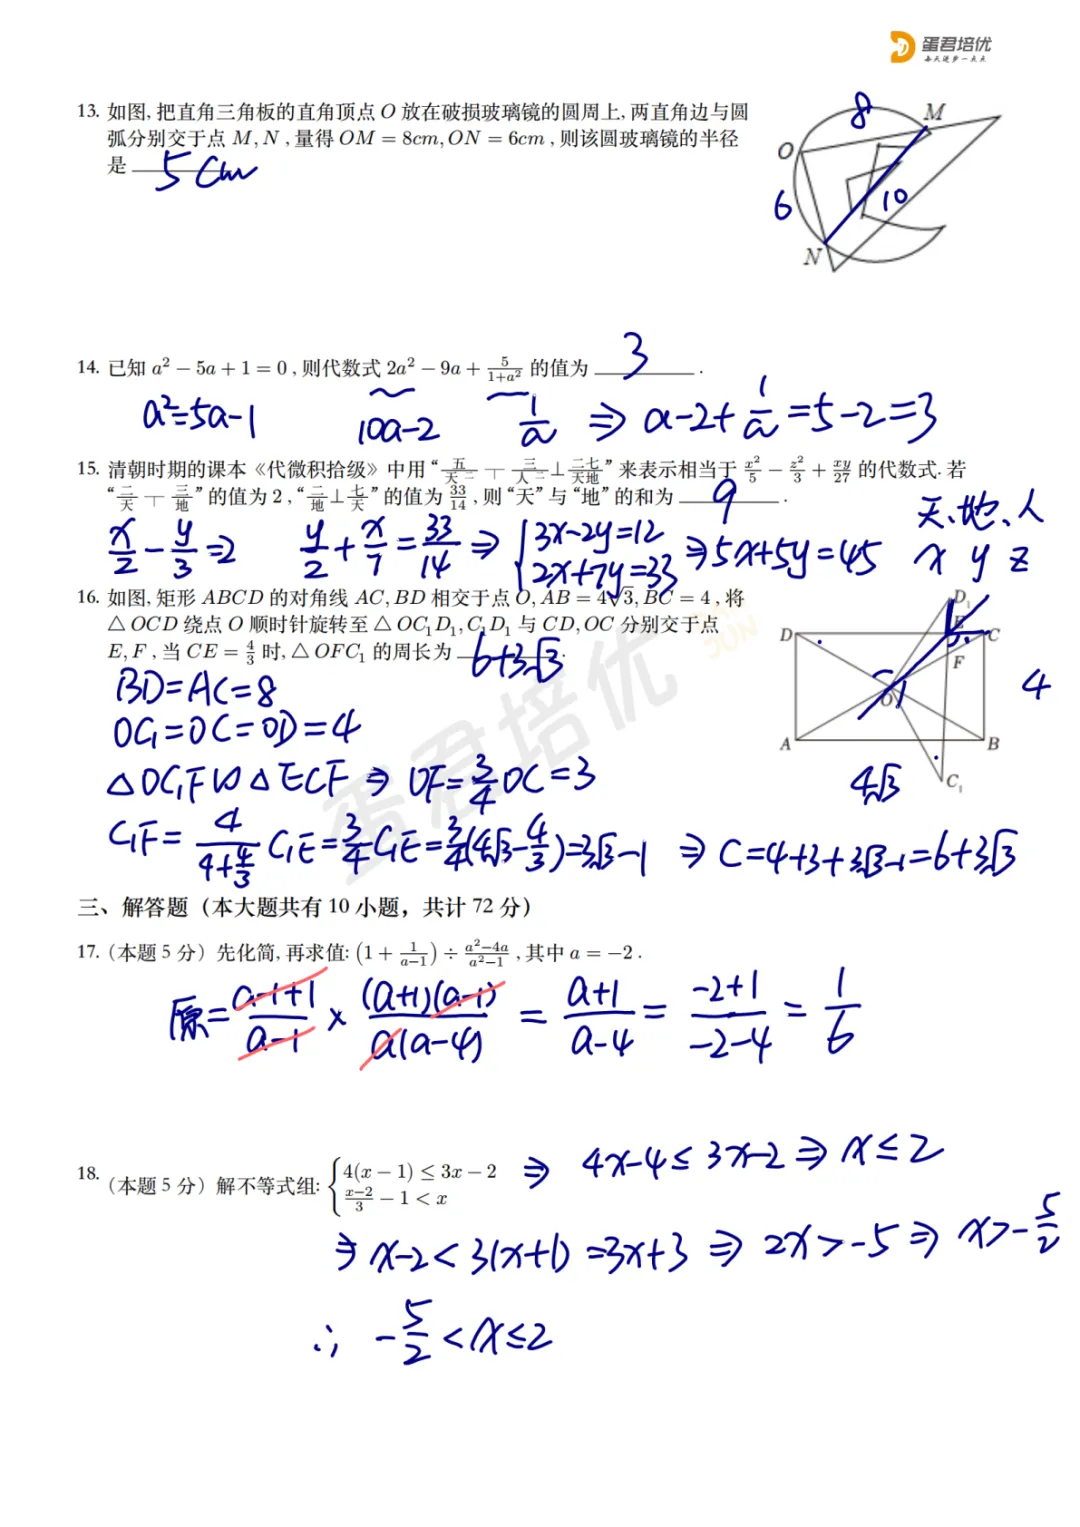 蛋君培优
每天进步一点点
13. 如图, 把直角三角板的直角顶点 O 放在破损玻璃镜的圆周上, 两直角边与圆
弧分别交于点 M, N , 量得 OM = 8cm, ON = 6cm , 则该圆玻璃镜的半径
是 5cm
O M N 8 6 10
14. 已知 a² − 5a + 1 = 0 , 则代数式 2a² − 9a + 5/(1+a²) 的值为 3 .
a²=5a-1 10a-2 1/a ⇒ a-2+1/a=5-2=3
15. 清朝时期的课本《代微积拾级》中用 “五/天二 ┬ 三/人二 ⊥ 二七/天地” 来表示相当于 x²/5 − z²/3 + xy/27 的代数式. 若
“二/天 ┬ 三/地” 的值为 2 , “二/地 ⊥ 七/天” 的值为 33/14 , 则 “天” 与 “地” 的和为 9 .
天、地、人
x y z
x/2 - y/3 =2 y/2 + x/7 = 33/14 ⇒ {3x-2y=12 2x+7y=33 ⇒5x+5y=45
16. 如图, 矩形 ABCD 的对角线 AC, BD 相交于点 O, AB = 4√3, BC = 4 , 将
△ OCD 绕点 O 顺时针旋转至 △ OC₁D₁, C₁D₁ 与 CD, OC 分别交于点
E, F , 当 CE = 4/3 时, △ OFC₁ 的周长为 6+3√3 .
D D₁ E C F O A B C₁ 4 4√3
BD=AC=8
OC₁=OC=OD=4
△OC₁F∽△ECF ⇒ OF=3/4 OC=3
C₁F= 4/(4+4/3) C₁E=3/4 C₁E=3/4(4√3-4/3)=3√3-1 ⇒ C=4+3+3√3-1=6+3√3
三、解答题（本大题共有 10 小题，共计 72 分）
17. （本题 5 分）先化简, 再求值: (1 + 1/(a−1)) ÷ (a²−4a)/(a²−1) , 其中 a = −2 .
原= (a-1+1)/(a-1) × (a+1)(a-1)/a(a-4) = (a+1)/(a-4) = (-2+1)/(-2-4) = 1/6
18. （本题 5 分）解不等式组: {4(x − 1) ≤ 3x − 2 ⇒ 4x-4≤3x-2⇒x≤2
(x−2)/3 − 1 < x
⇒ x-2<3(x+1) =3x+3 ⇒ 2x>-5⇒ x>-5/2
∴ -5/2<x≤2
蛋君培优